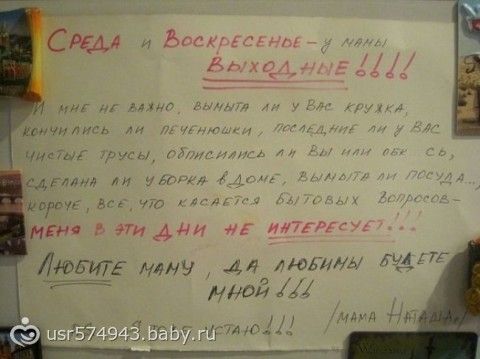 Среда и Воскресенье – у мамы
ВЫХОДНЫЕ!!!!
И мне не важно, вымыта ли у Вас кружка,
кончились ли печенюшки, последние ли у Вас
чистые трусы, описились ли Вы или обк сь,
сделана ли уборка в доме, вымыта ли посуда...,
короче, всё, что касается бытовых вопросов –
меня в эти дни не интересует!!!
Любите маму, да любимы будете
мной!!!
устаю!!! /мама Наташа/
usr574943.baby.ru